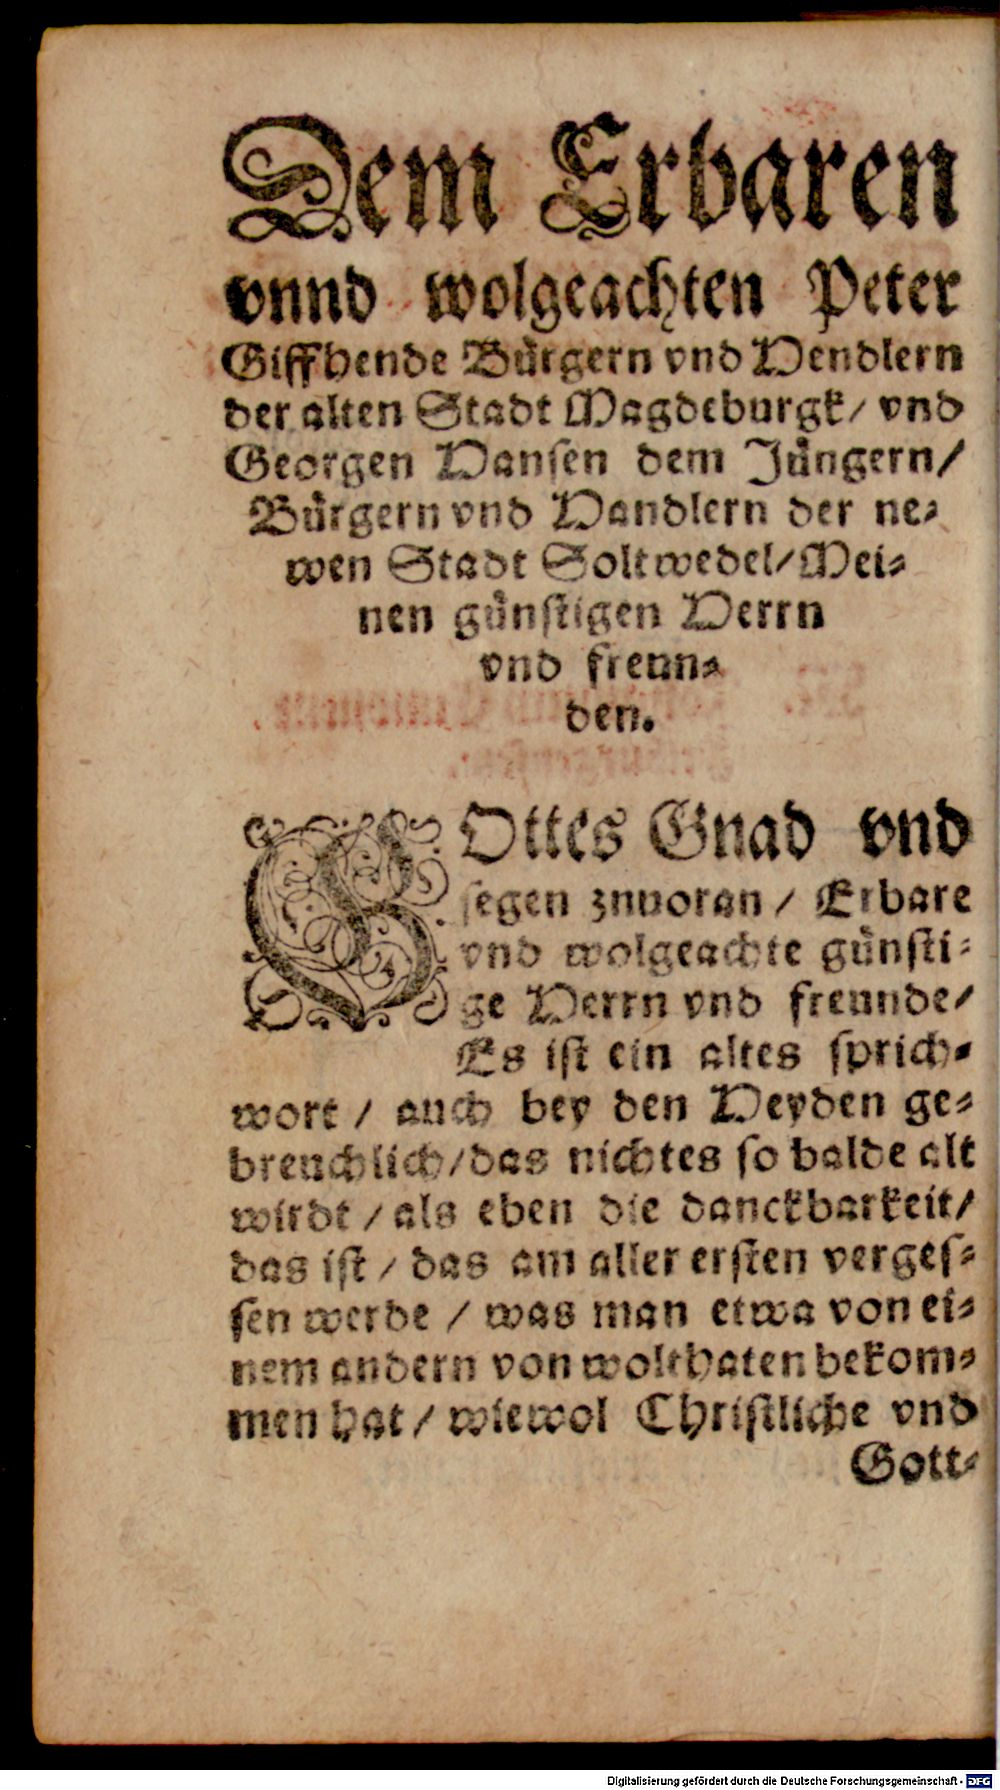 Dem Erbaren
vnnd wolgeachten Peter
Giffhende Bürgern vnd Hendlern
der alten Stadt Magdeburgk/ vnd
Georgen Hansen dem Jüngern/
Bürgern vnd Handlern der ne⸗
wen Stadt Soltwedel/ Mei⸗
nen günstigen Herrn
vnd freun⸗
den.
GOttes Gnad vnd
segen znuoran / Erbare
vnd wolgeachte günsti⸗
ge Herrn vnd freunde/
Es ist ein altes sprich⸗
wort / auch bey den Heyden ge⸗
breuchlich/ das nichtes so balde alt
wirdt / als eben die danckbarkeit/
das ist / das am aller ersten verges⸗
sen werde / was man etwa von ei⸗
nem andern von wolthaten bekom⸗
men hat / wiewol Christliche vnd
Gott⸗
Digitalisierung gefördert durch die Deutsche Forschungsgemeinschaft - DFG